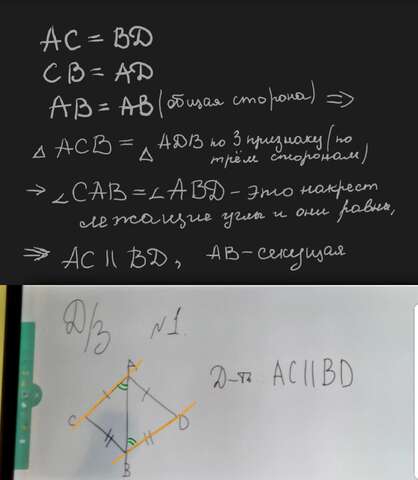 AC = BD
CB = AD
AB = AB (общая сторона) ⇒
△ ACB = △ ADB по 3 признаку (по
трём сторонам)
→ ∠CAB = ∠ABD - это накрест
лежащие углы и они равны,
⇒ AC || BD, AB - секущая
Д/З №1.
Д-ть AC||BD
A
C
D
B